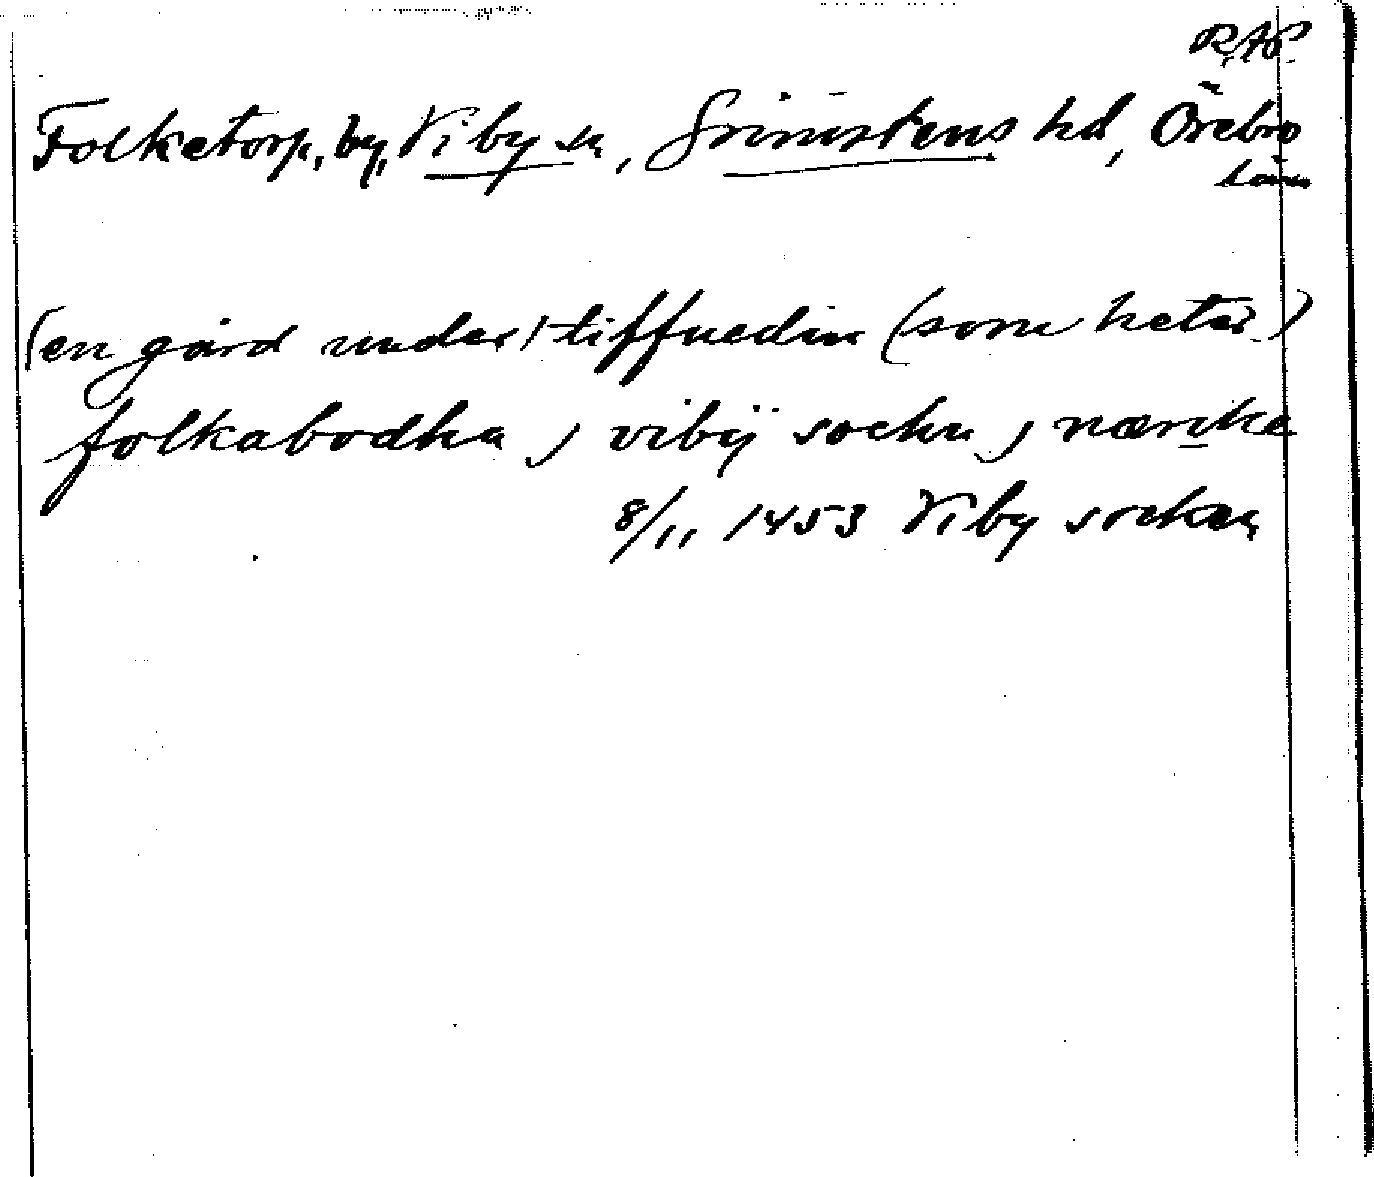 R.A.P.
Folketorp, by, Viby sn, Grimstens hd, Örebro
län
(en gård under) tiffuedin (som heter)
folkabodha j vibÿ sockn j nærike
8/11 1453 Viby socken